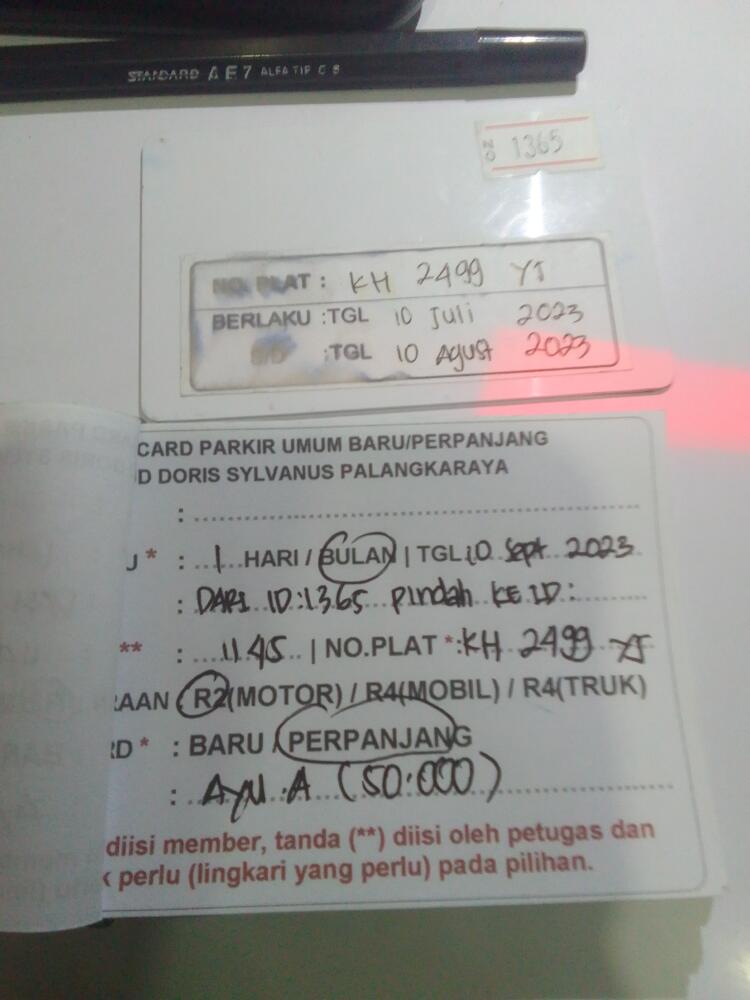 STANDARD AE7 ALFA TIP
NO 1365
NO. PLAT : KH 2499 YJ
BERLAKU :TGL 10 Juli 2023
S/D :TGL 10 Agust 2023
CARD PARKIR UMUM BARU/PERPANJANG
D DORIS SYLVANUS PALANGKARAYA
: ........................
U * : 1 HARI / BULAN | TGL 10 Sept 2023
: DARI ID:1365 pindah KE ID:
** : 1145 | NO.PLAT *: KH 2499 YJ
RAAN : R2(MOTOR) / R4(MOBIL) / R4(TRUK)
RD * : BARU / PERPANJANG
: AYU.A (50.000)
diisi member, tanda (**) diisi oleh petugas dan
k perlu (lingkari yang perlu) pada pilihan.